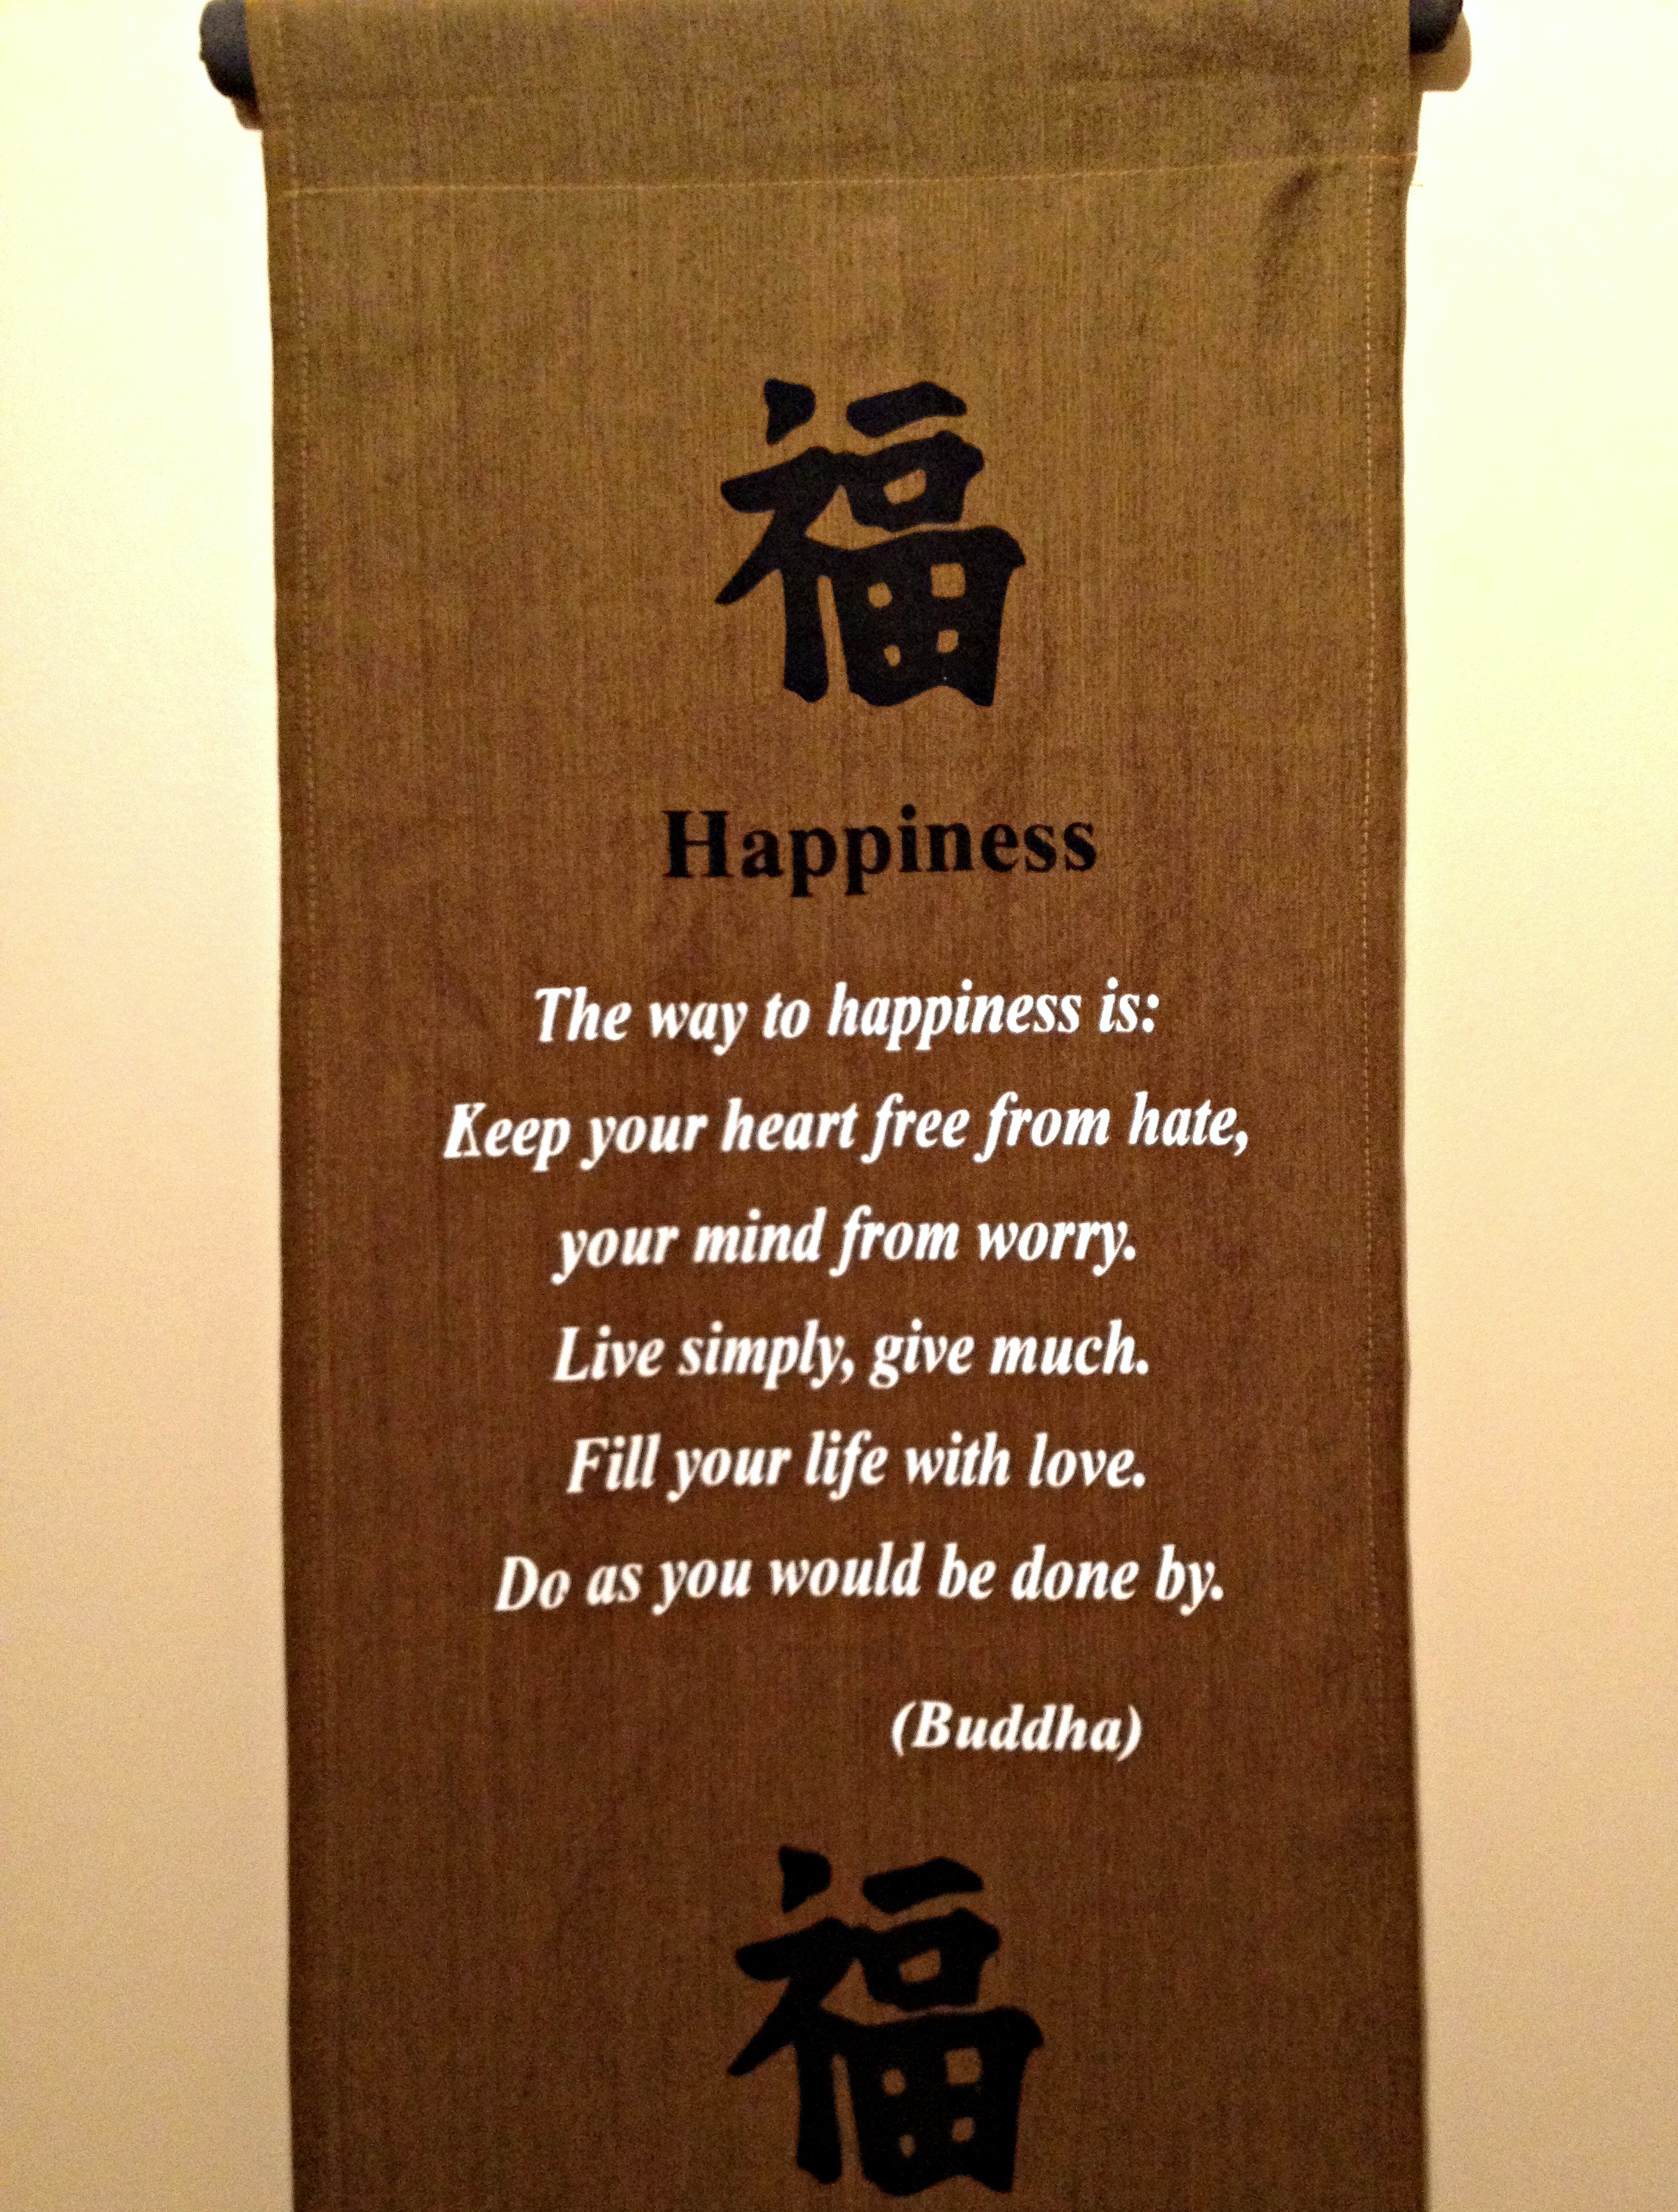 福
Happiness
The way to happiness is:
Keep your heart free from hate,
your mind from worry.
Live simply, give much.
Fill your life with love.
Do as you would be done by.
(Buddha)
福